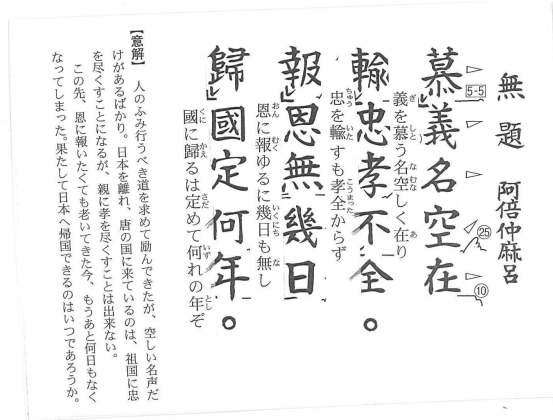 無題 阿倍仲麻呂
5-5
慕義名空在
㉕
⑩
義を慕う名空しく在り
ぎ した なむな あ
輸忠孝不全。
忠を輸すも孝全からず
ちゅう いた こうまった
報恩無幾日
恩に報ゆるに幾日も無し
おん むく いくにち な
歸國定何年。
國に歸るは定めて何れの年ぞ
くに かえ さだ いず とし
【意解】 人のふみ行うべき道を求めて励んできたが、空しい名声だ
けがあるばかり。日本を離れ、唐の国に来ているのは、祖国に忠
を尽くすことになるが、親に孝を尽くすことは出来ない。
この先、恩に報いたくても老いてきた今、もうあと何日もなく
なってしまった。果たして日本へ帰国できるのはいつであろうか。